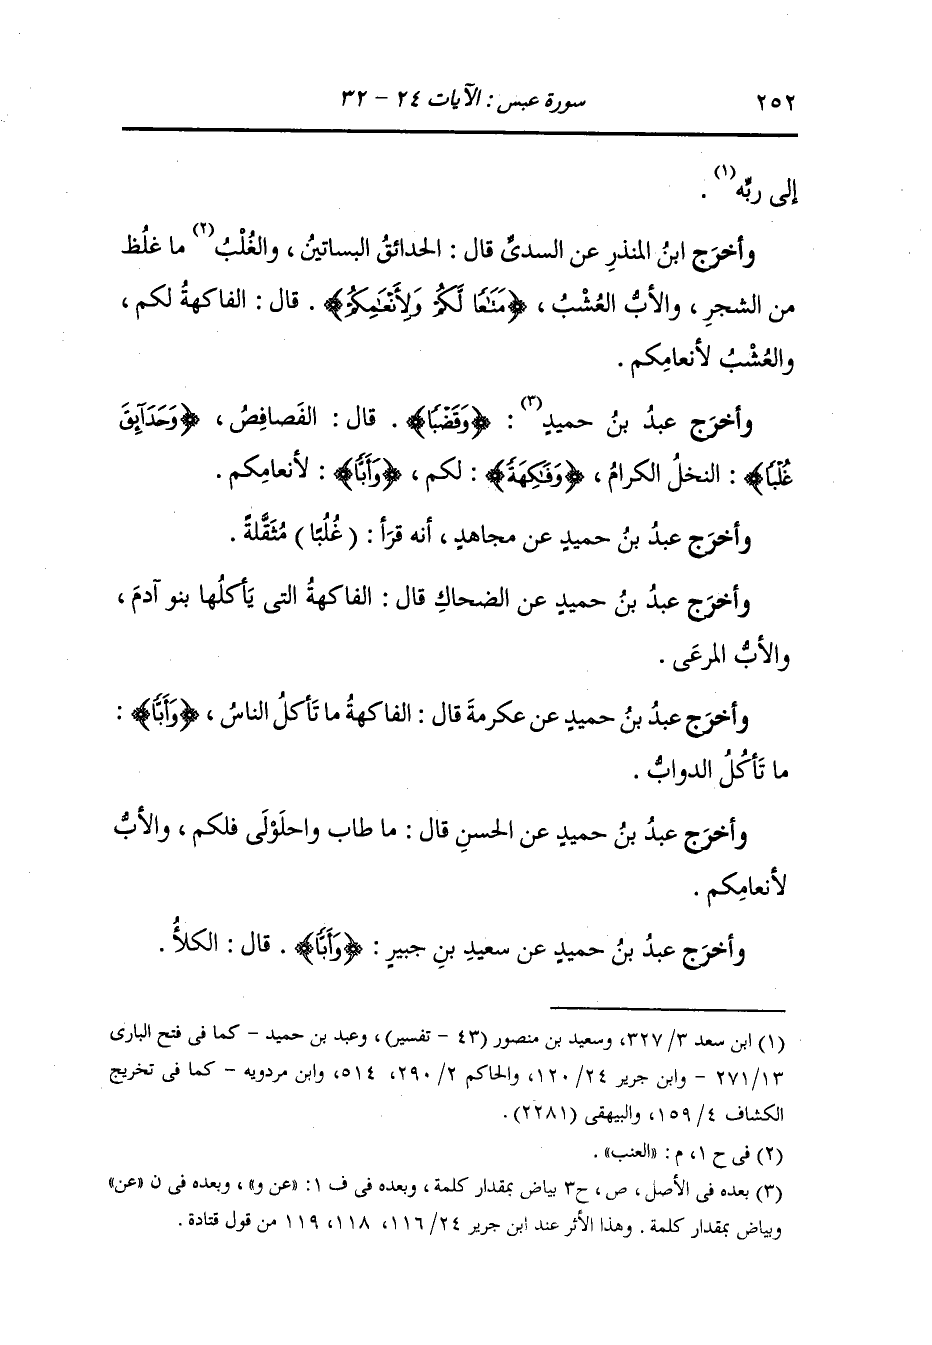 ٢٥٢ سورة عبس : الآيات ٢٤ - ٣٢
إلى ربِّه(١) .
وأخرَج ابنُ المنذرِ عن السدىِّ قال : الحدائقُ البساتينُ ، والغُلْبُ(٢) ما غلُظ
من الشجرِ ، والأبُّ العُشْبُ ، ﴿مَتَٰعًا لَّكُمْ وَلِأَنْعَٰمِكُمْ﴾ . قال : الفاكهةُ لكم ،
والعُشْبُ لأنعامِكم .
وأخرَج عبدُ بنُ حميدٍ(٣) : ﴿وَقَضْبًا﴾ . قال : الفَصافِصُ ، ﴿وَحَدَآئِقَ
غُلْبًا﴾ : النخلُ الكرامُ ، ﴿وَفَٰكِهَةً﴾ : لكم ، ﴿وَأَبًّا﴾ : لأنعامِكم .
وأخرَج عبدُ بنُ حميدٍ عن مجاهدٍ ، أنه قرَأ : ( غُلُبًا ) مُثَقَّلةً .
وأخرَج عبدُ بنُ حميدٍ عن الضحاكِ قال : الفاكهةُ التى يَأكلُها بنو آدمَ ،
والأبُّ المرعَى .
وأخرَج عبدُ بنُ حميدٍ عن عكرمةَ قال : الفاكهةُ ما تَأكلُ الناسُ ، ﴿وَأَبًّا﴾ :
ما تَأكُلُ الدوابُّ .
وأخرَج عبدُ بنُ حميدٍ عن الحسنِ قال : ما طاب واحلَوْلَى فلكم ، والأبُّ
لأنعامِكم .
وأخرَج عبدُ بنُ حميدٍ عن سعيدِ بنِ جبيرٍ : ﴿وَأَبًّا﴾ . قال : الكلأُ .
(١) ابن سعد ٣/ ٣٢٧، وسعيد بن منصور (٤٣ - تفسير) ، وعبد بن حميد - كما فى فتح البارى
٢٧١/١٣ - وابن جرير ٢٤/ ١٢٠، والحاكم ٢/ ٢٩٠، ٥١٤، وابن مردويه - كما فى تخريج
الكشاف ٤/ ١٥٩، والبيهقى (٢٢٨١).
(٢) فى ح ١، م : «العنب» .
(٣) بعده فى الأصل ، ص ، ح٣ بياض بمقدار كلمة ، وبعده فى ف ١: «عن و» ، وبعده فى ن «عن»
وبياض بمقدار كلمة . وهذا الأثر عند ابن جرير ٢٤/ ١١٦، ١١٨، ١١٩ من قول قتادة .